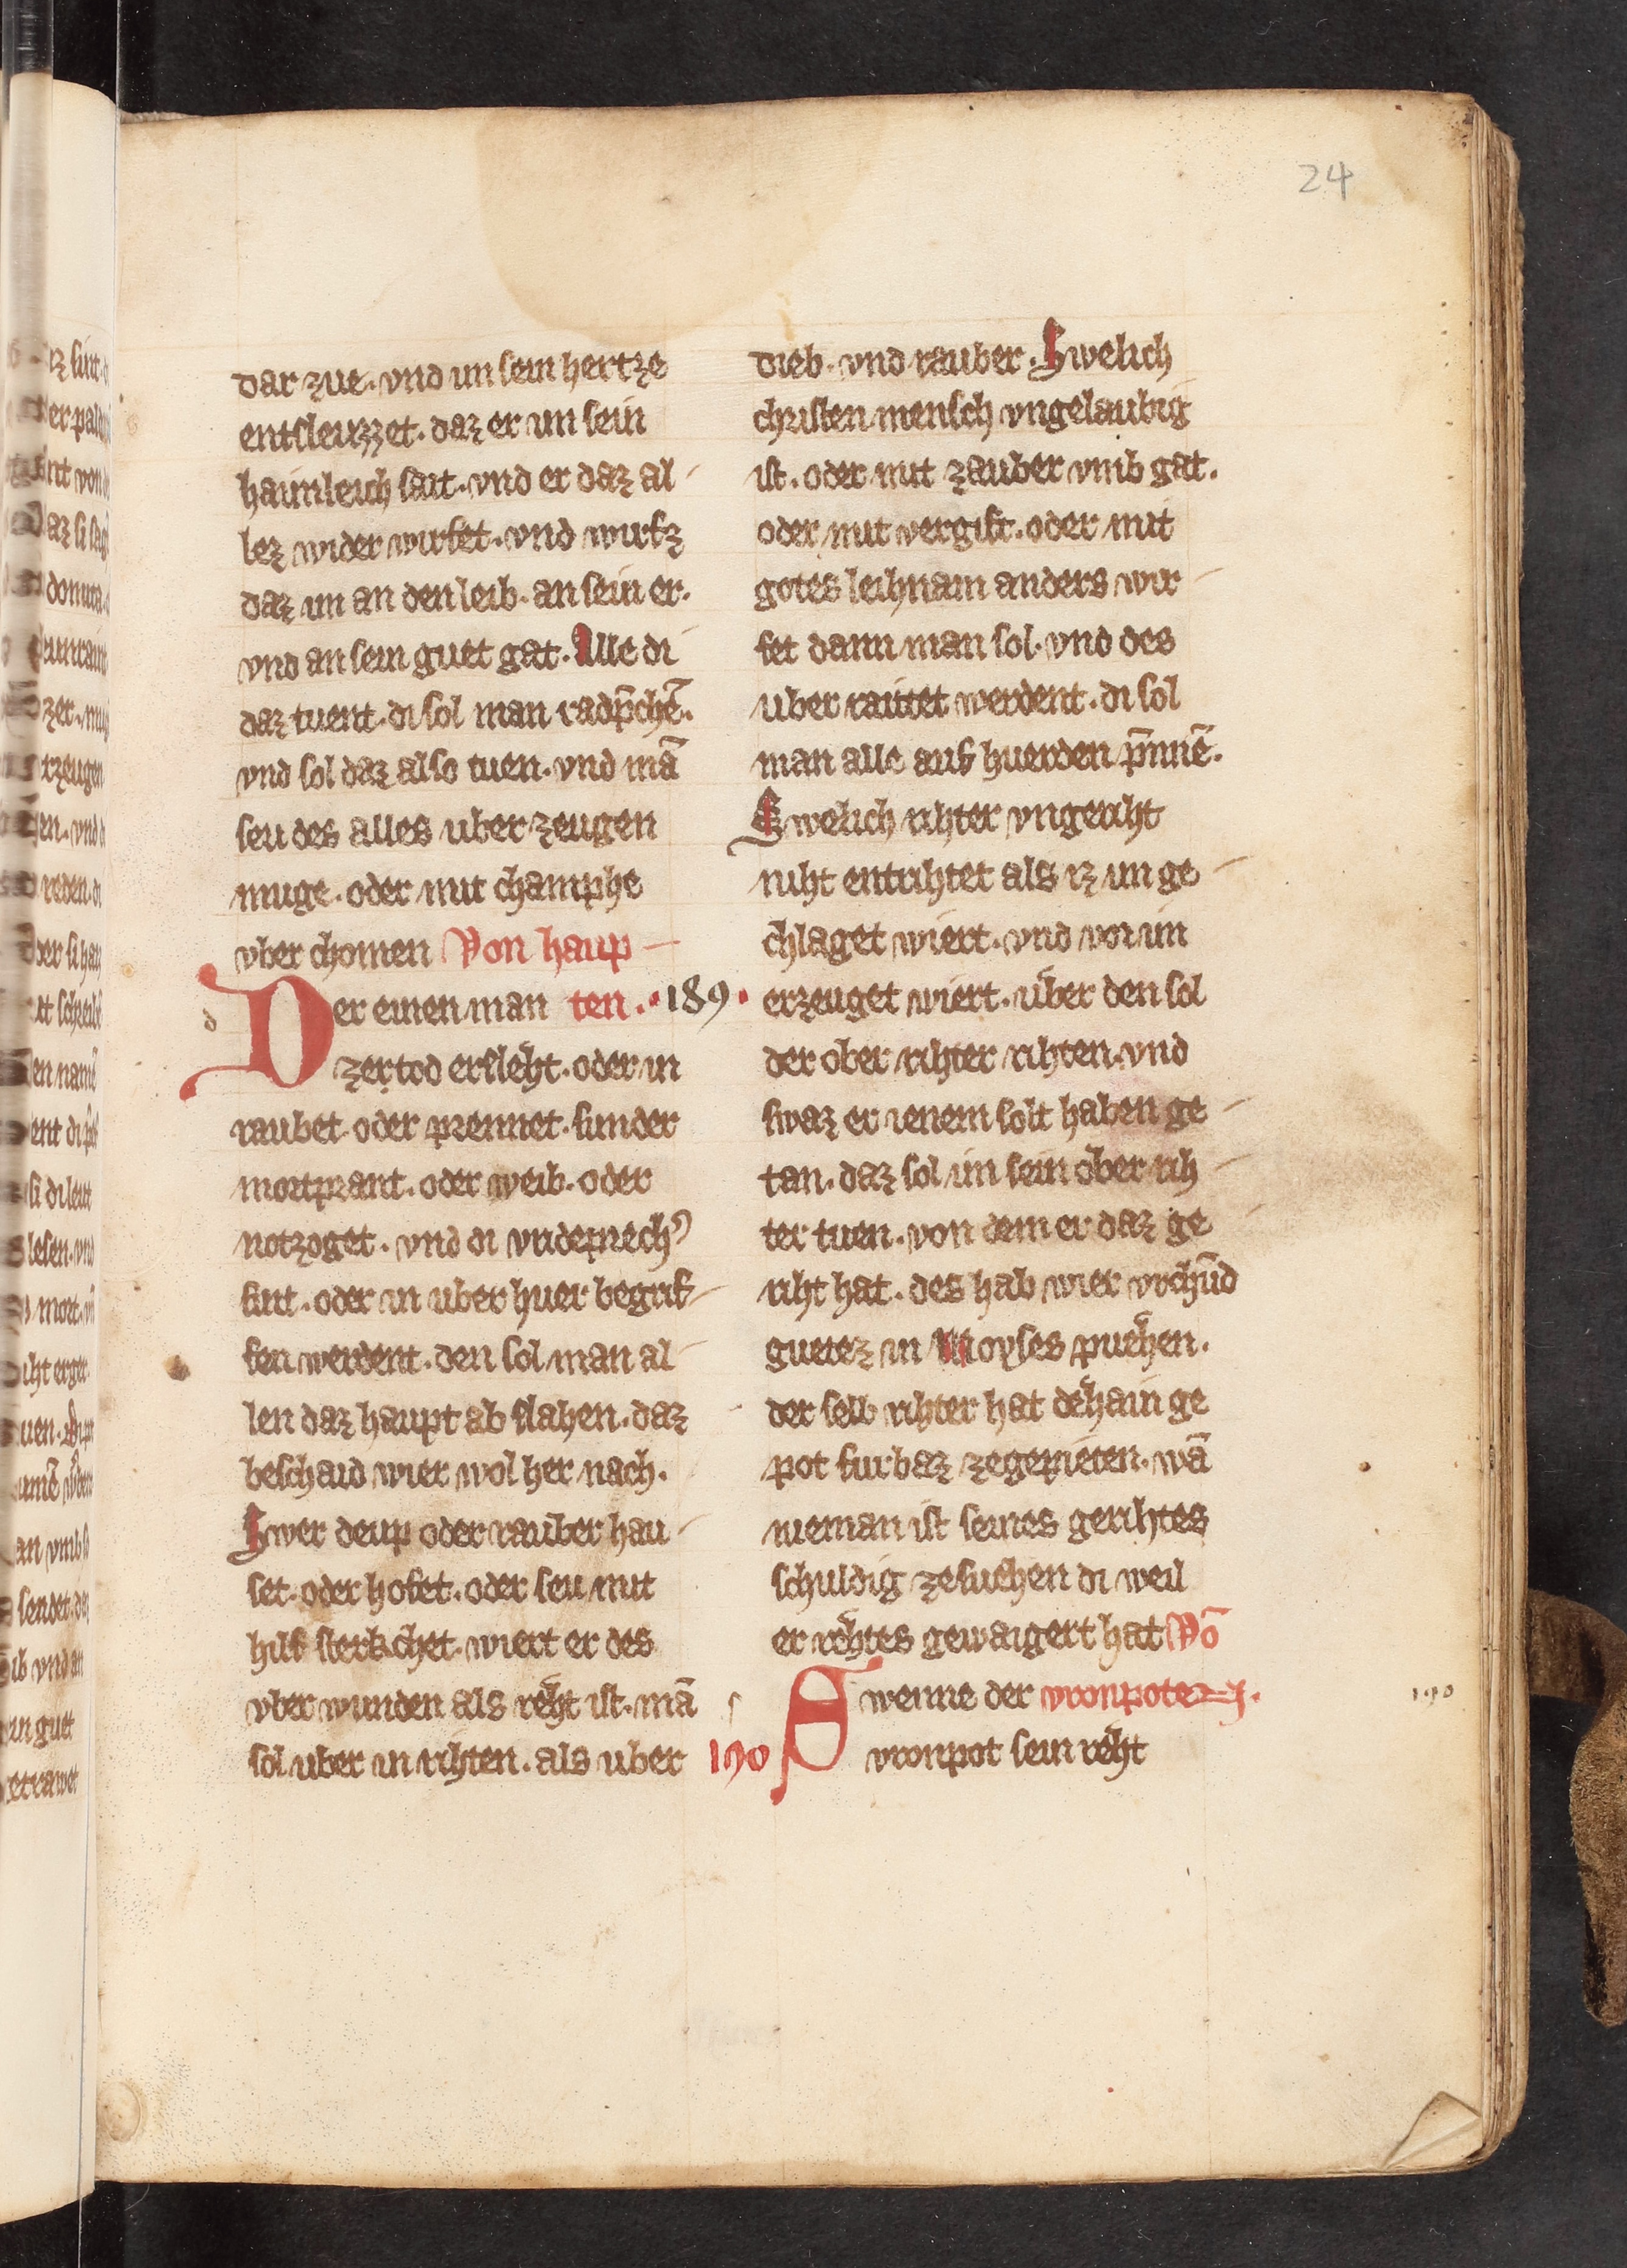 24
dar zue. vnd im sein hertze
entsleuzzet. daz er im sein
haimleich sait. vnd er daz al
lez wider wirfet. vnd wirfz
daz im an den leib. an sein er.
vnd an sein guet gat. Alle di
daz tuent. di sol man radp̄chē.
vnd sol daz also tuen. vnd mā
seu des alles uber zeugen
muge. oder mit champhe
vber chomen Von haup
Der einen man ten. · 189 ·
zer tod ersleht. oder in
raubet. oder prennet. sunder
mortprant. oder weib. oder
notzoget. vnd di vride prech
sint. oder in uber huer begrif
fen werdent. den sol man al
len daz haupt ab slahen. daz
beschaid wier wol her nach.
Swer deup oder rauber hau
set. oder hofet. oder seu mit
hilf sterkchet. wiert er des
vber wunden als reht ist. mā
sol uber in rihten. als uber
dieb. vnd rauber. Swelich
christen mensch vngelaubig
ist. oder mit zauber vmb gat.
oder mit vergift. oder mit
gotes leihnam anders wir
fet dann man sol. vnd des
uber raittet werdent. di sol
man alle auf huerden p̄nnē.
Swelich rihter vngeriht
niht entrihtet als iz im ge
chlaget wiert. vnd vor im
erzeuget wiert. uber den sol
der ober rihter rihten. vnd
swaz er ienem solt haben ge
tan. daz sol im sein ober rih
ter tuen. von dem er daz ge
riht hat. des hab wier vrchūd
guetez in Moyses puehen.
der selb rihter hat dehain ge
pot furbaz ze gepieten. wā
nieman ist seines gerihtes
schuldig ze suchen di weil
er rehtes gewaigert hat Vō
Swenne der vronpoten.
190 vronpot sein reht
190